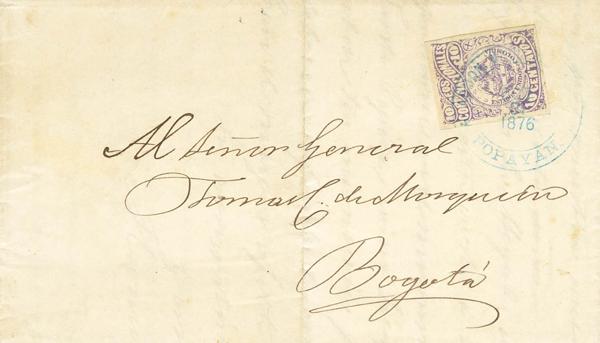 10 CENTAVOS
1876
POPAYÁN
Al Señor General
Tomas C. de Mosquera
Bogotá